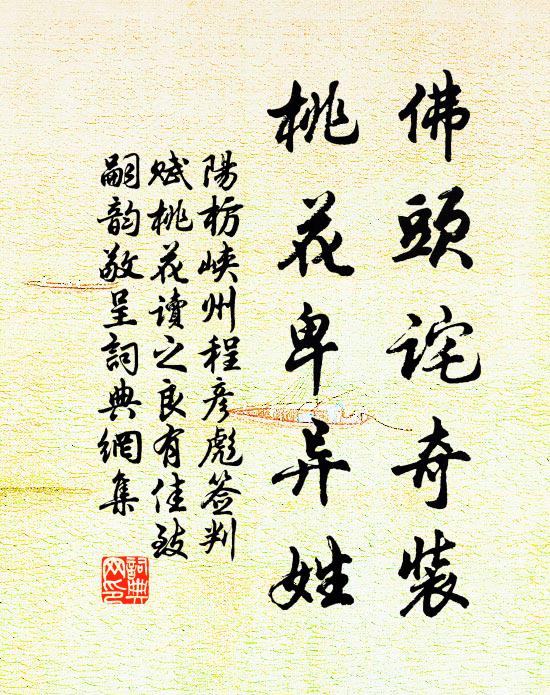 佛頭詫奇裝
桃花卑异姓
陽枋峽州程彥彪簽判
賦桃花讀之良有佳致
嗣韵敬呈詞典網集
詞典網印